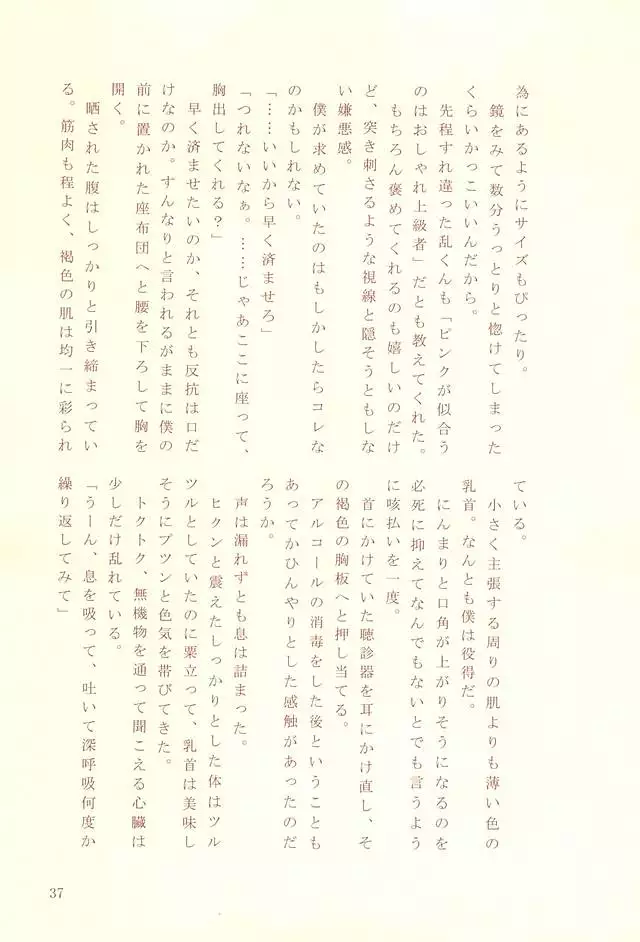 為にあるようにサイズもぴったり。
鏡をみて数分うっとりと惚けてしまった
くらいかっこいいんだから。
先程すれ違った乱くんも「ピンクが似合う
のはおしゃれ上級者」だとも教えてくれた。
もちろん褒めてくれるのも嬉しいのだけ
ど、突き刺さるような視線と隠そうともしな
い嫌悪感。
僕が求めていたのはもしかしたらコレな
のかもしれない。
「……いいから早く済ませろ」
「つれないなぁ。……じゃあここに座って、
胸出してくれる？」
早く済ませたいのか、それとも反抗は口だ
けなのか。すんなりと言われるがままに僕の
前に置かれた座布団へと腰を下ろして胸を
開く。
晒された腹はしっかりと引き締まってい
る。筋肉も程よく、褐色の肌は均一に彩られ
ている。
小さく主張する周りの肌よりも薄い色の
乳首。なんとも僕は役得だ。
にんまりと口角が上がりそうになるのを
必死に抑えてなんでもないとでも言うよう
に咳払いを一度。
首にかけていた聴診器を耳にかけ直し、そ
の褐色の胸板へと押し当てる。
アルコールの消毒をした後ということも
あってかひんやりとした感触があったのだ
ろうか。
声は漏れずとも息は詰まった。
ヒクンと震えたしっかりとした体はツル
ツルとしていたのに粟立って、乳首は美味し
そうにプツンと色気を帯びてきた。
トクトク、無機物を通って聞こえる心臓は
少しだけ乱れている。
「うーん、息を吸って、吐いて深呼吸何度か
繰り返してみて」
37